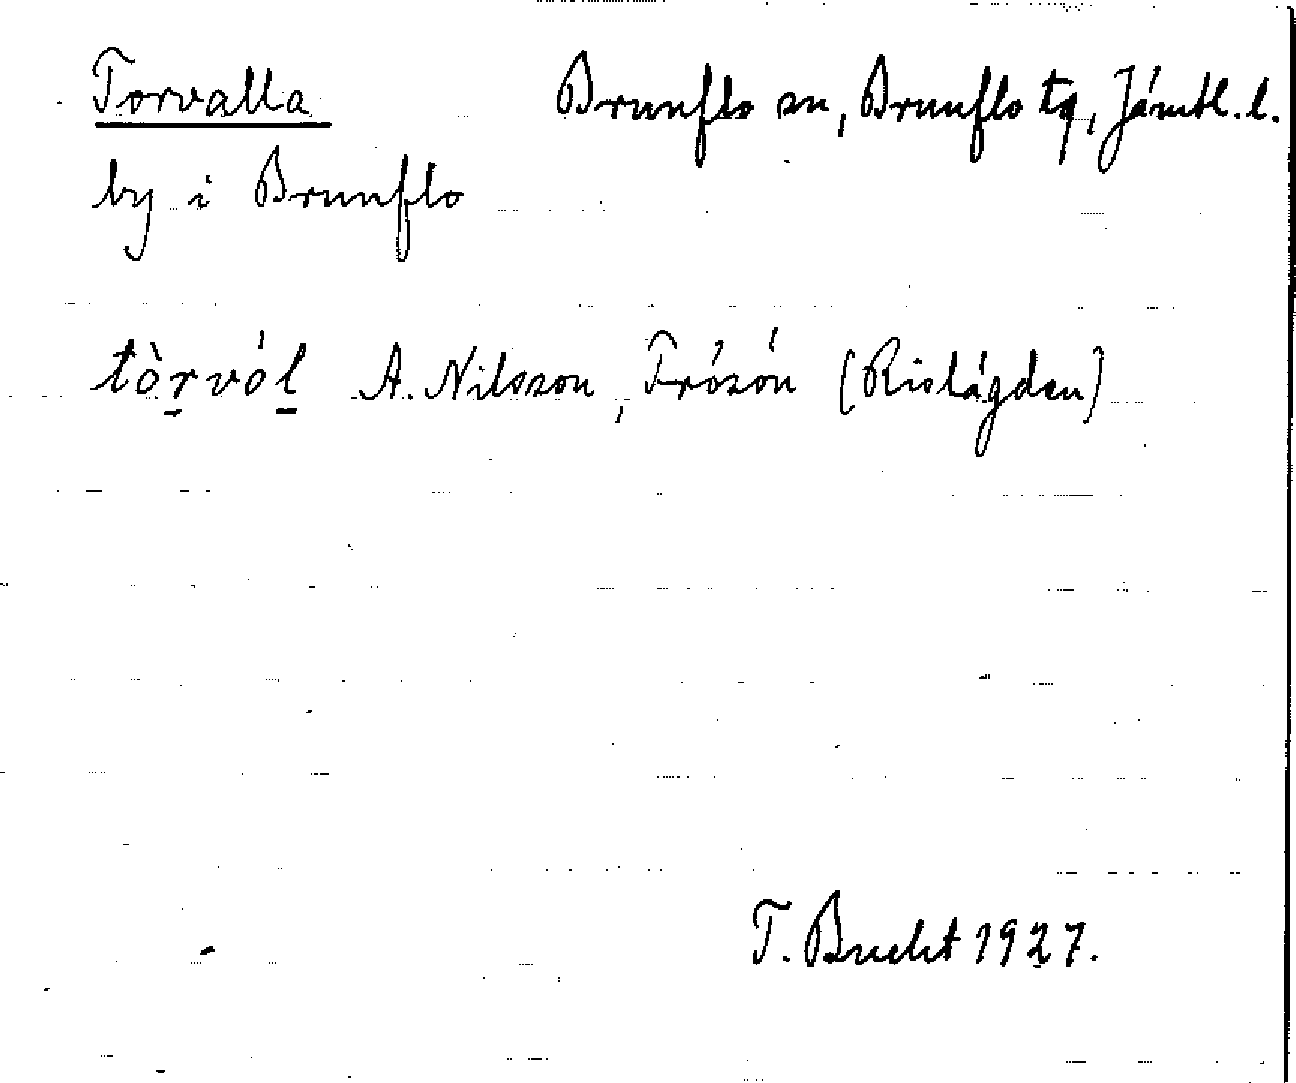 Torvalla Brunflo sn, Brunflo tg, Jämtl. l.
by i Brunflo
tòrvól A. Nilsson, Frösön (Rislägden)
T. Bucht 1927.